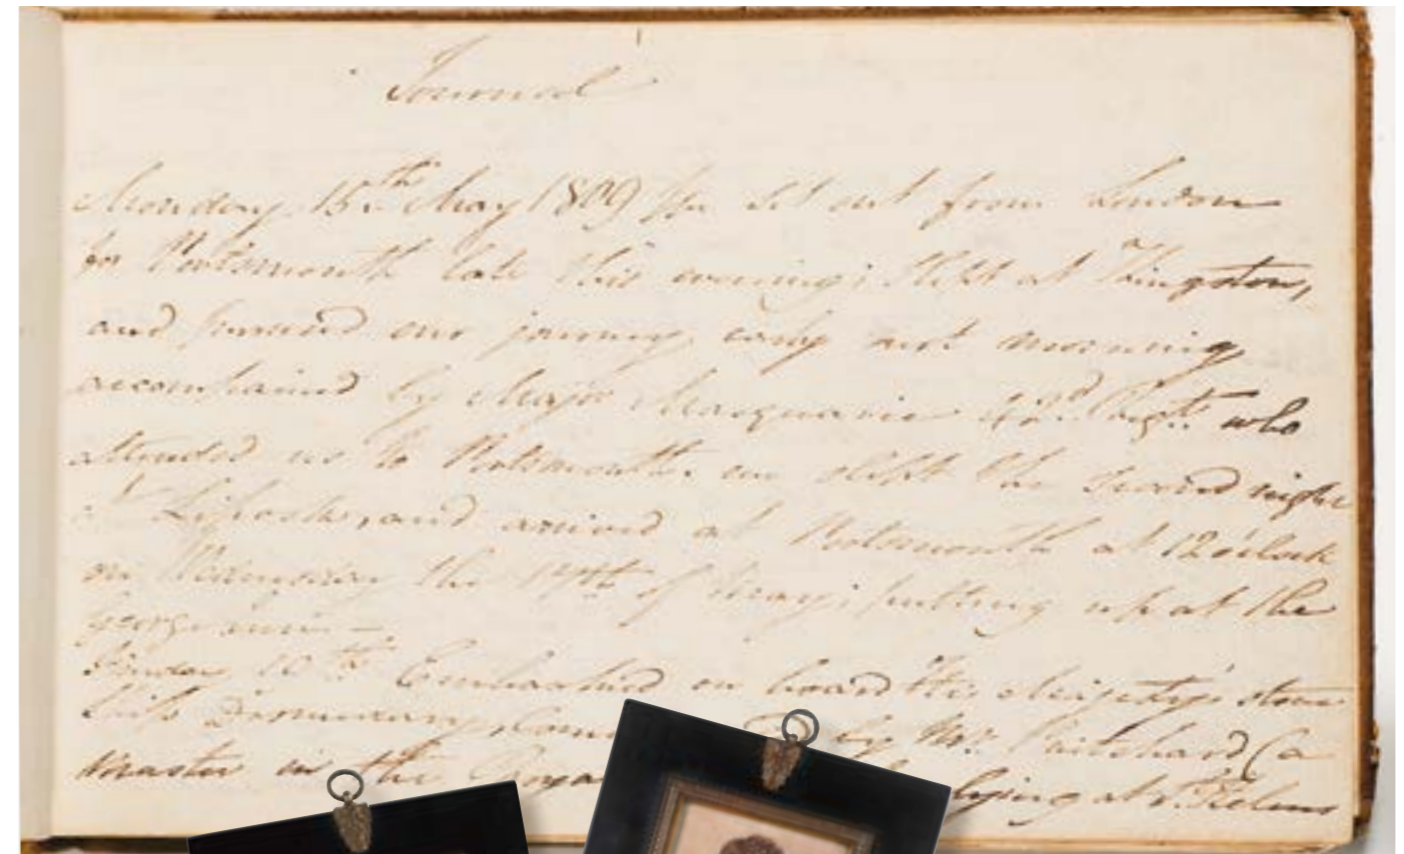 Journal
Monday 15th. May 1809 We set out from London
for Portsmouth late this evening; slept at Kingston,
and pursued our journey early next morning
accompained by Major Macquarie 42d. Regt. who
attended us to Portsmouth. we slept the second night
at Liphook, and arrived at Portsmouth at 12 o'clock
on Wednesday the 17th of May; putting up at the
George inn —
Embarked on board His Majesty's store
Ship Dromedary, by Mr. Pritchard (a
master in the lying at St. Helens